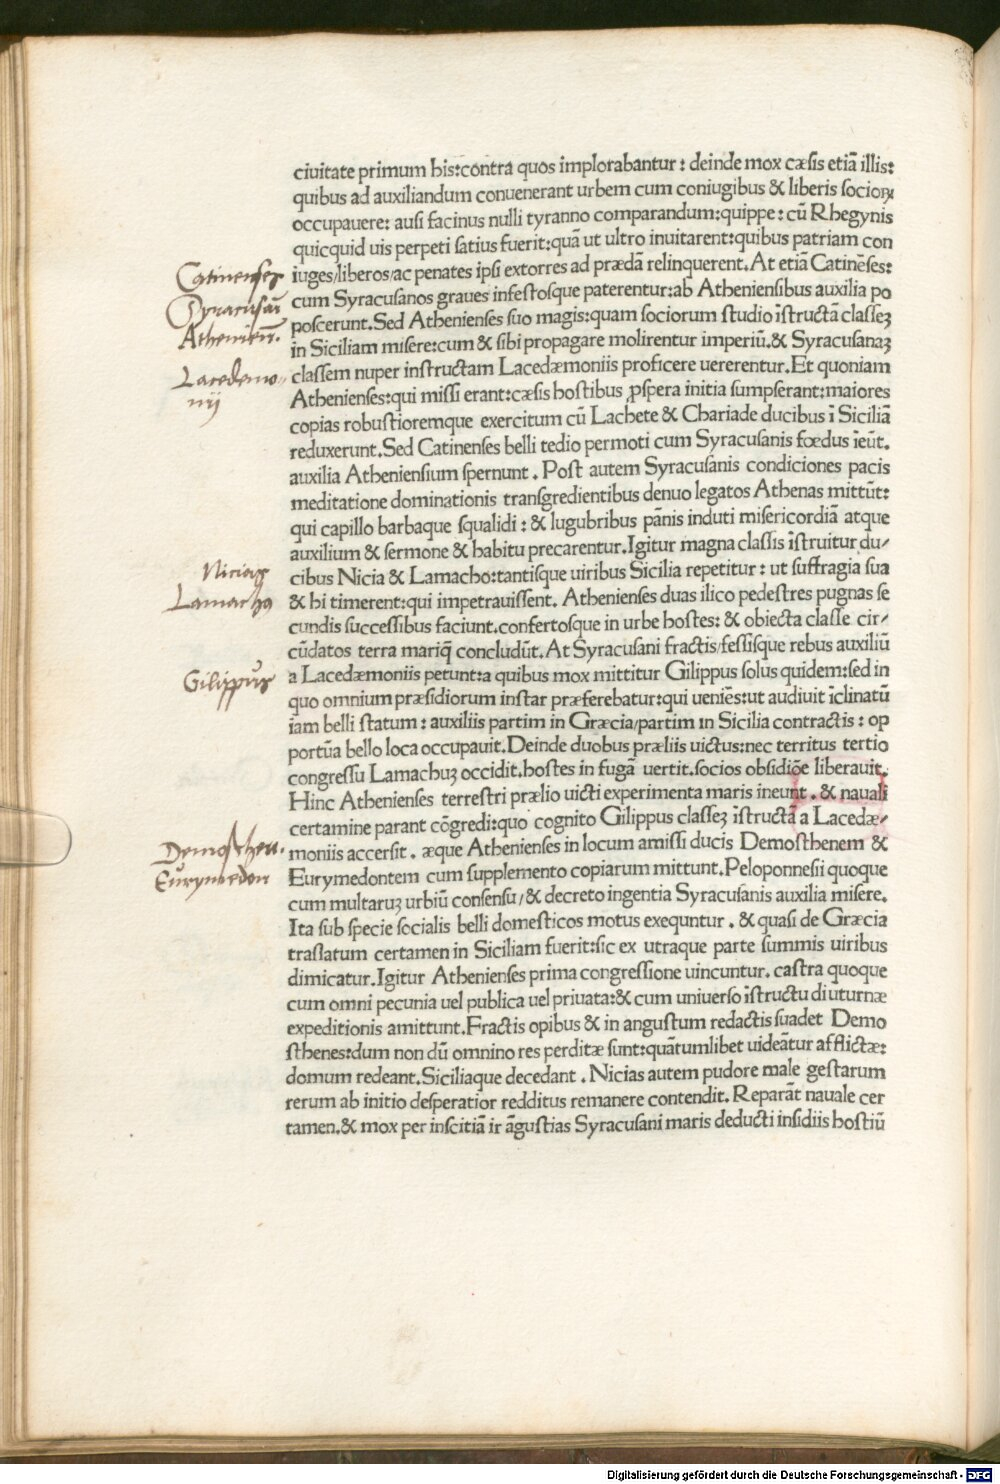 ciuitate primum his:contra quos implorabantur : deinde mox cæsis etiā illis:
quibus ad auxiliandum conuenerant urbem cum coniugibus & liberis socioꝝ
occupauere: ausi facinus nulli tyranno comparandum:quippe : cū Rhegynis
quicquid uis perpeti satius fuerit:quā ut ultro inuitarent:quibus patriam con
iuges/liberos/ac penates ipsi extorres ad prædā relinquerent.At etiā Catinēses:
Catinenses
cum Syracusanos graues infestosque paterentur:ab Atheniensibus auxilia po
Syracusani
poscerunt.Sed Athenienses suo magis:quam sociorum studio īstructā classeȝ
Athenien.
in Siciliam misere:cum & sibi propagare molirentur imperiū.& Syracusanaȝ
classem nuper instructam Lacedæmoniis proficere uererentur.Et quoniam
Lacedemo//
nij
Athenienses:qui missi erant:cæsis hostibus ꝓspera initia sumpserant:maiores
copias robustioremque exercitum cū Lachete & Chariade ducibus ī Siciliā
reduxerunt.Sed Catinenses belli tedio permoti cum Syracusanis fœdus īeūt.
auxilia Atheniensium spernunt . Post autem Syracusanis condiciones pacis
meditatione dominationis transgredientibus denuo legatos Athenas mittūt:
qui capillo barbaque squalidi : & lugubribus pānis induti misericordiā atque
auxilium & sermone & habitu precarentur.Igitur magna classis īstruitur du/
cibus Nicia & Lamacho:tantisque uiribus Sicilia repetitur : ut suffragia sua
Nicias
Lamachus
& hi timerent:qui impetrauissent. Athenienses duas ilico pedestres pugnas se
cundis successibus faciunt.confertosque in urbe hostes: & obiecta classe cir/
cūdatos terra mariq̄ concludūt.At Syracusani fractis/fessisque rebus auxiliū
a Lacedæmoniis petunt:a quibus mox mittitur Gilippus solus quidem:sed in
Gilippus
quo omnium præsidiorum instar præferebatur:qui ueniēs:ut audiuit īclinatū
iam belli statum : auxiliis partim in Græcia/partim in Sicilia contractis : op
portūa bello loca occupauit.Deinde duobus præliis uictus:nec territus tertio
congressu Lamachuȝ occidit.hostes in fugā uertit.socios obsidiōe liberauit.
Hinc Athenienses terrestri prælio uicti experimenta maris ineunt . & nauali
certamine parant cōgredi:quo cognito Gilippus classeȝ īstructā a Lacedæ/
moniis accersit . æque Athenienses in locum amissi ducis Demosthenem &
Demosthen.
Eurymedontem cum supplemento copiarum mittunt.Peloponnesii quoque
Eurymedon
cum multaruȝ urbiū consensu/& decreto ingentia Syracusanis auxilia misere.
Ita sub specie socialis belli domesticos motus exequntur . & quasi de Græcia
traslatum certamen in Siciliam fuerit:sic ex utraque parte summis uiribus
dimicatur.Igitur Athenienses prima congressione uincuntur. castra quoque
cum omni pecunia uel publica uel priuata:& cum uniuerso īstructu diuturnæ
expeditionis amittunt.Fractis opibus & in angustum redactis suadet Demo
sthenes:dum non dū omnino res perditæ sunt:quātumlibet uideātur afflictæ:
domum redeant.Siciliaque decedant . Nicias autem pudore male gestarum
rerum ab initio desperatior redditus remanere contendit. Reparāt nauale cer
tamen.& mox per inscitiā ir āgustias Syracusani maris deducti insidiis hostiū
Digitalisierung gefördert durch die Deutsche Forschungsgemeinschaft - DFG